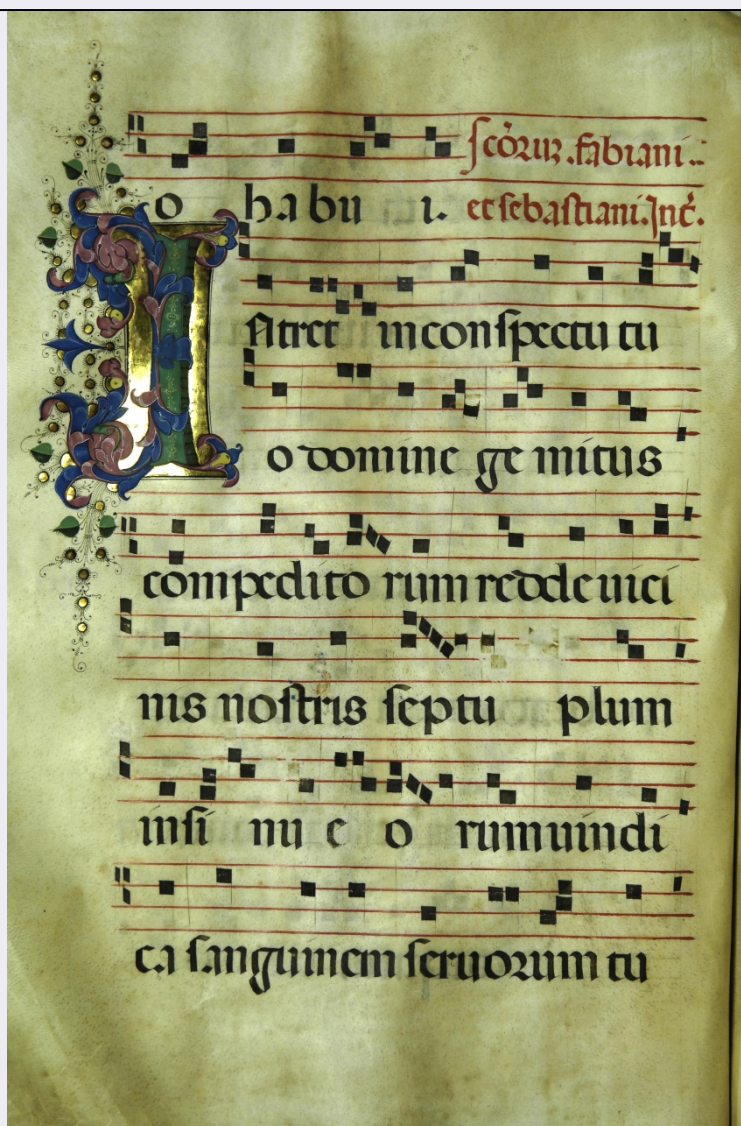 o habu i. scōrum. fabiani
et sebastiani. Int̄.
Intret in conspectu tu
o domine gemitus
compedito rum redde uici
nis nostris septu plum
in si nu e o rum uindi
ca sanguinem seruorum tu